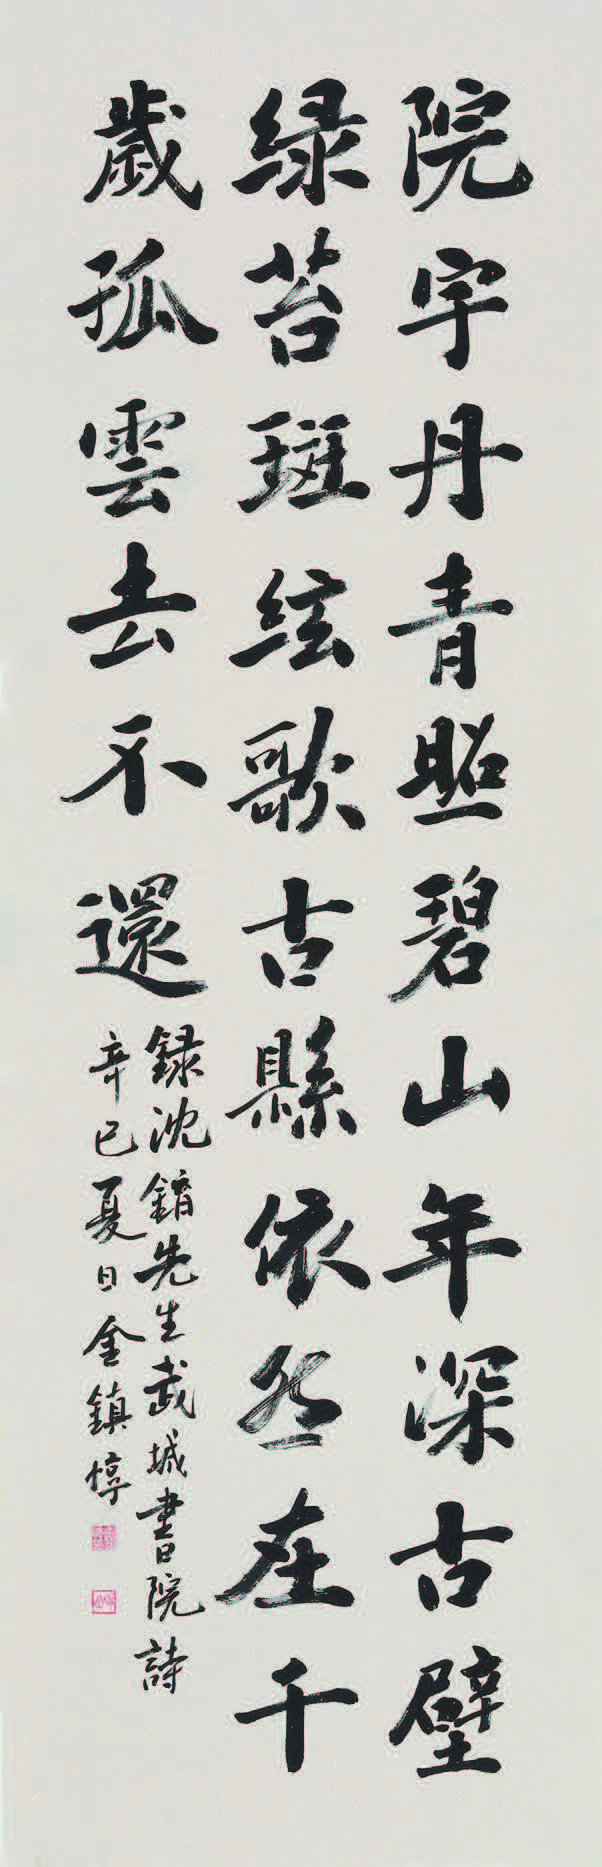 院宇丹青照碧山年深古壁
绿苔斑絃歌古縣依然在千
歲孤雲去不還
録沈錥先生武城書院詩
辛巳夏日金鎮惇